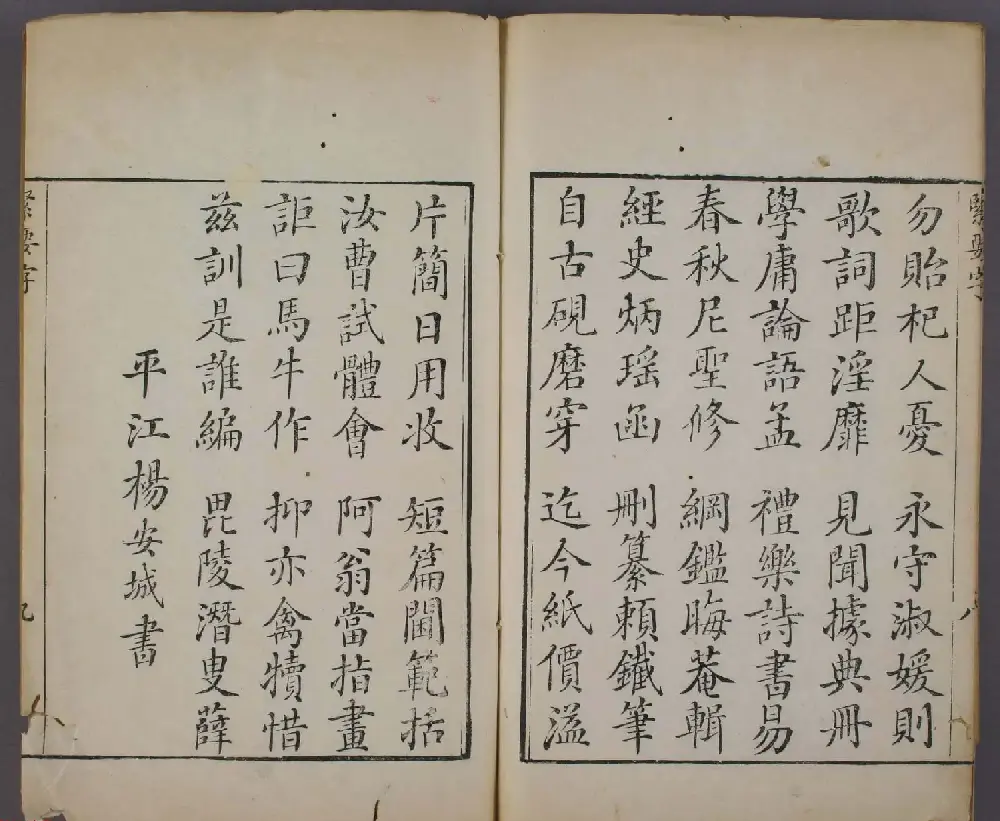 緊要字
勿貽杞人憂 永守淑媛則
歌詞距淫靡 見聞據典冊
學庸論語孟 禮樂詩書易
春秋尼聖修 綱鑑晦菴輯
經史炳瑤函 刪纂賴鐵筆
自古硯磨穿 迄今紙價溢
八
片簡日用收 短篇閫範括
汝曹試體會 阿翁當指畫
詎曰馬牛作 抑亦禽犢惜
茲訓是誰編 毘陵潛叟薛
平江楊安城書
緊要字
九